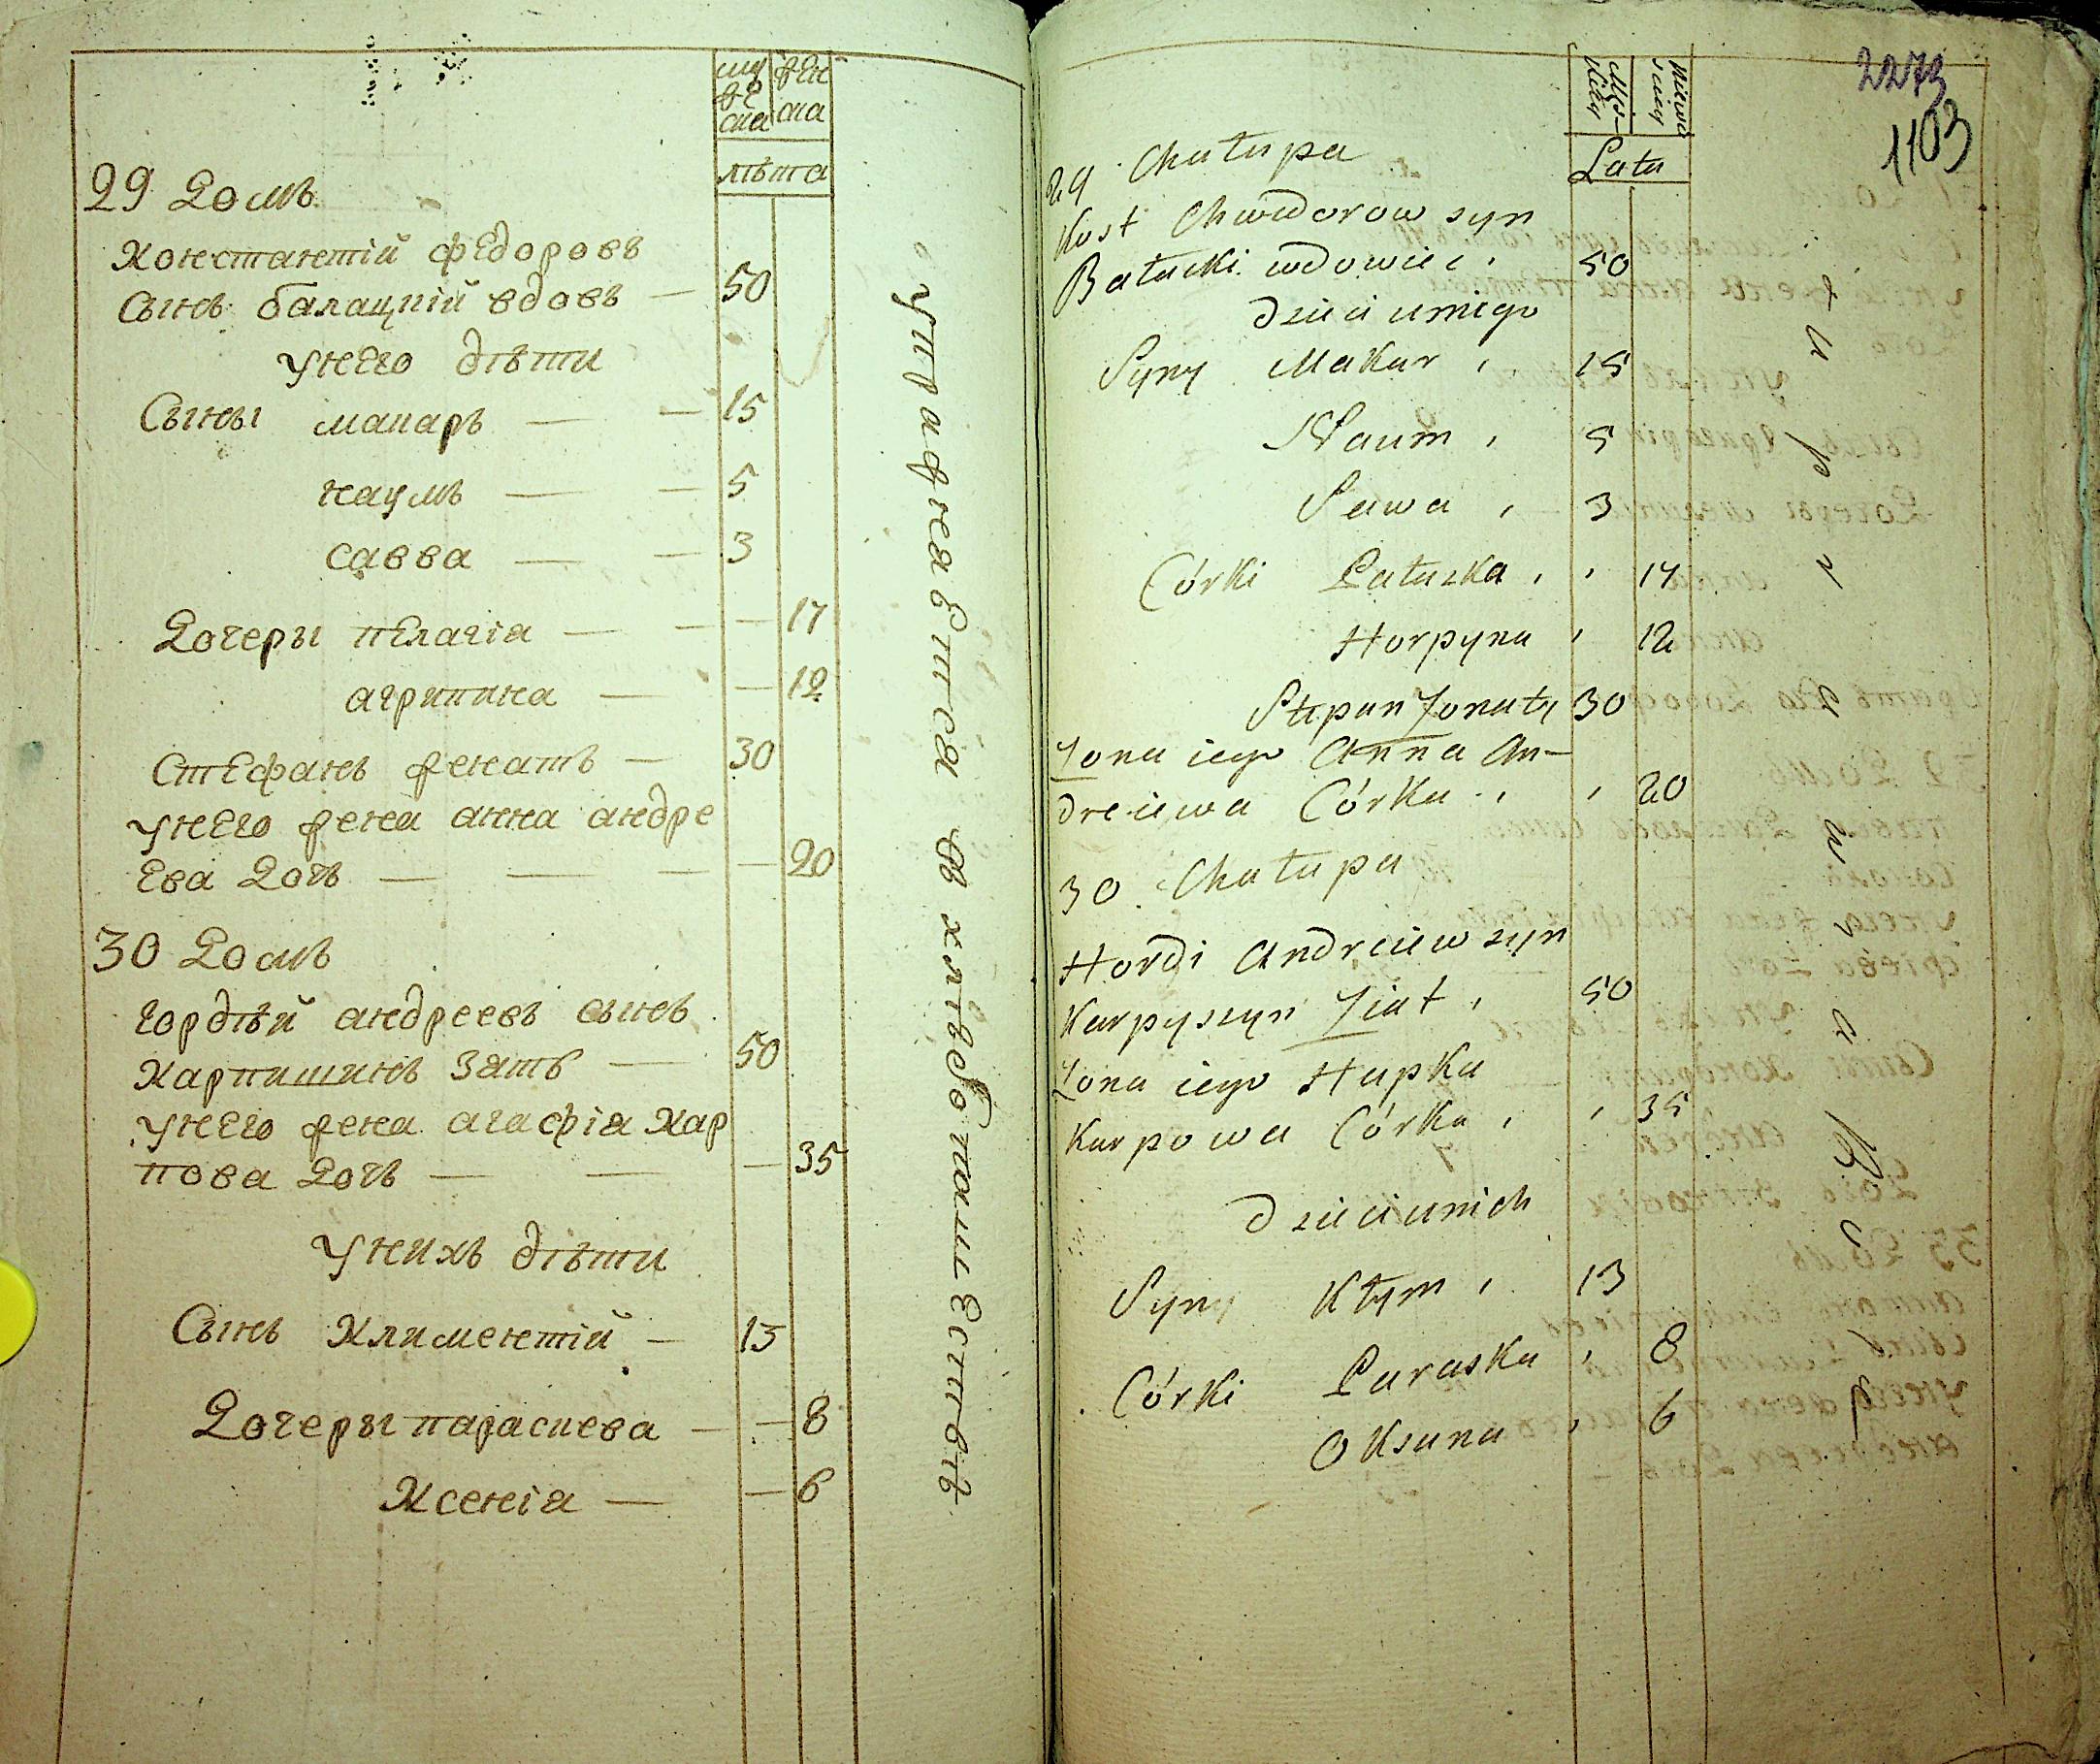 муж
ска
жен
ска
лѣта
29 Домъ
Констянтій федоровъ
Сынъ балацкій вдовъ — 50
унего дѣти
Сыны макаръ — — 15
наумъ — — 5
савва — — 3
Дочеры пелагіа — — — 17
агрипина — — 12
Стефанъ женатъ — 30
унего жена анна андре
ева Дочь — — — — 20
30 Домъ
гордѣй андреевъ сынъ
Карпишинъ зять — 50
унего жена агафіа Кар
пова Дочь — — — 35
унихъ дѣти
Сынъ Климентій — 13
Дочеры параскева — — 8
Ксеніа — — 6
упражнаются в хлѣбопашествѣ
2273
1103
Męs-
kiey
Latu
29 Chałupa
Kost Chwedorow syn
Bałacki wdowiec , 50
Dzieci uniego
Syny Makar , 15
Naum , 5
Sawa , 3
Córki Pałazka , , 17
Horpyna , 12
Stepan Żonaty 30
Żona iego Anna An-
dreiewa Córka , , 20
30 Chałupa
Hordi Andreiew syn
Karpyszyn Ziat , 50
Żona iego Hapka
Karpowa Córka , , 35
Dzieci unich
Syny Kłym , 13
Córki Paraska , 8
Oksana , 6